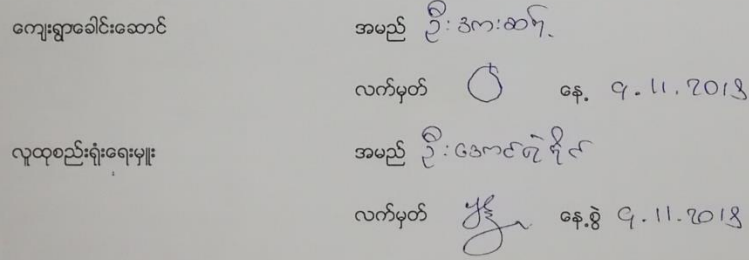 ကျေးရွာခေါင်းဆောင် အမည် ဦးအေးဆန်
လက်မှတ် နေ့ ၎.11.2019
လူထုစည်းရုံးရေးမှူး အမည် ဦးအောင်ရဲနိုင်
လက်မှတ် နေ့စွဲ ၎.11.2019